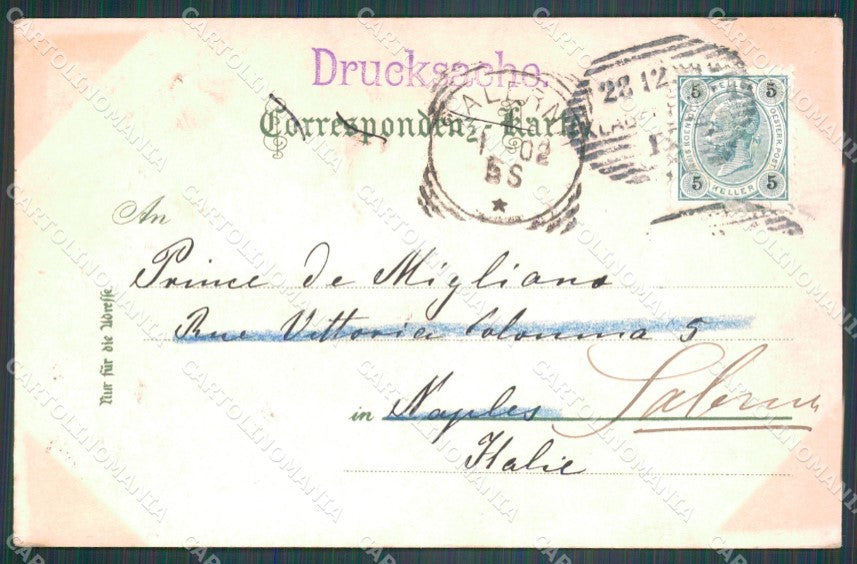 Drucksache.
Correspondenz-Karte
22 12
02
5 5
5 HELLER 5
An
Prince de Migliano
Rue Vittoria Colonna 5
in Naples Salerno
Italie
Nur für die Adresse
CARTOLINOMANIA